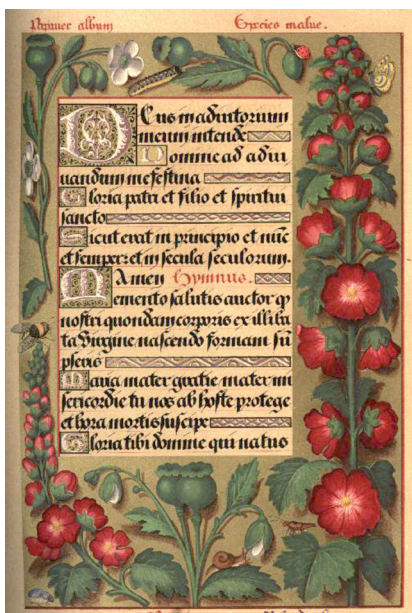 Papauer album Species malue.
Deus in adiutorium
meum intende
Domine ad adiu
uandum me festina
Gloria patri et filio et spiritui
sancto
Sicut erat in principio et nūc
et semper: et in secula seculorum.
Amen Hymnus.
Memento salutis auctor qͩ
nostri quondam corporis ex illiba
ta Virgine nascendo formam sū
pseris
Maria mater gratie mater mi
sericordie tu nos ab hoste protege
et hora mortis suscipe
Gloria tibi domine qui natus